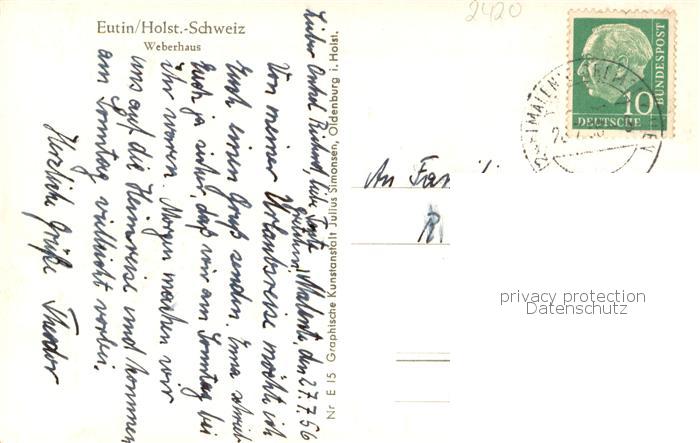 Eutin/Holst.-Schweiz
Weberhaus
2420
Lieber Onkel Richard, liebe Tante
Malente, den 27.7.56
Von meiner Urlaubsreise möchte ich
Euch einen Gruß senden. Erna schrieb
Euch ja sicher, daß wir am Sonntag bei
ihr waren. Morgen machen wir
uns auf die Heimreise und kommen
am Sonntag vielleicht vorbei.
Herzliche Grüße Theodor
Nr E 15 Graphische Kunstanstalt Julius Simonsen, Oldenburg i. Holst.
DEUTSCHE
BUNDESPOST
10
An
privacy protection
Datenschutz